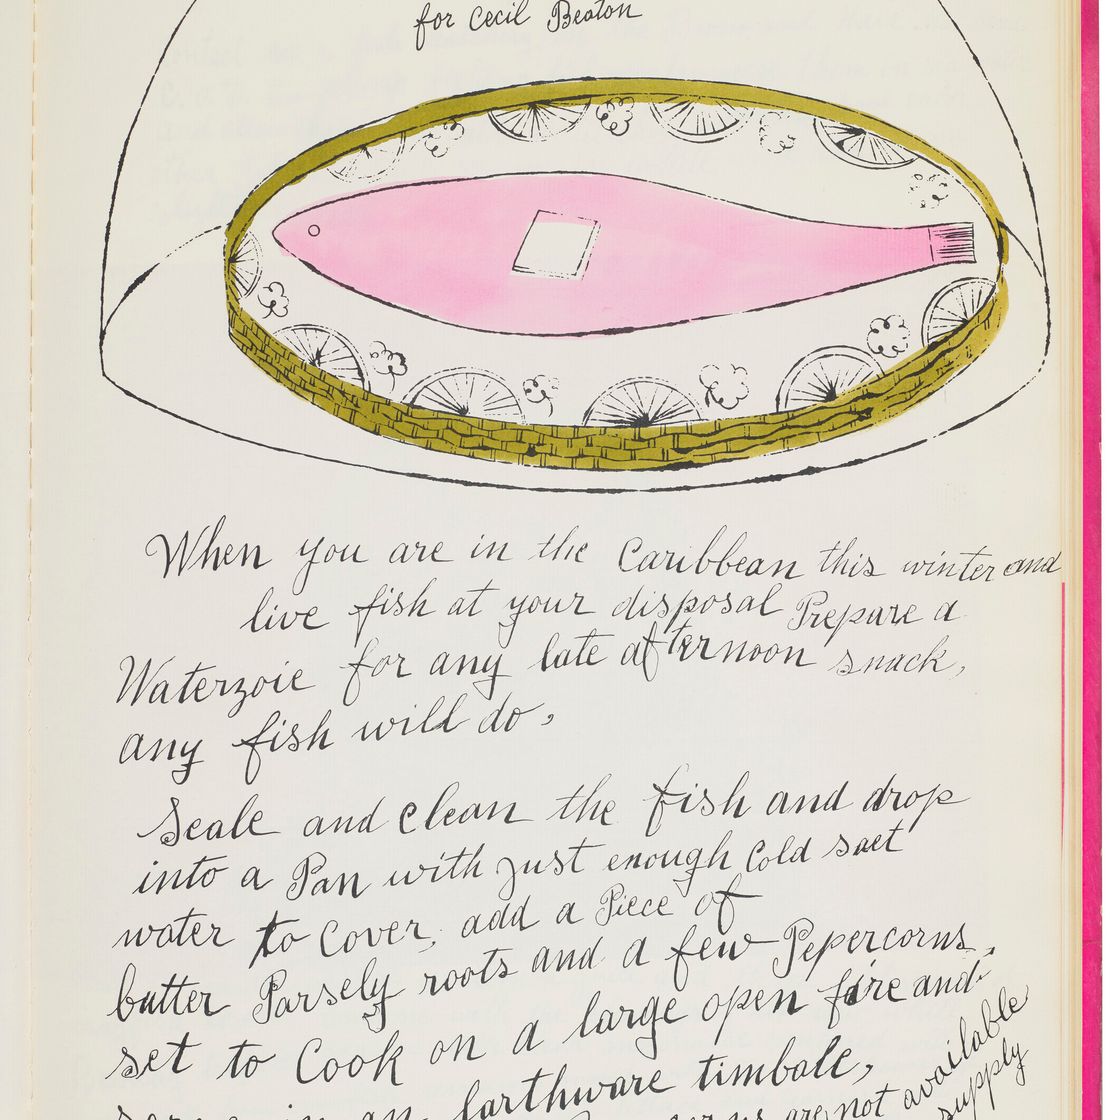 for Cecil Beaton
When you are in the Caribbean this winter and
live fish at your disposal Prepare a
Waterzoie for any late afternoon snack,
any fish will do,
Scale and clean the fish and drop
into a Pan with just enough Cold salt
water to Cover, add a Piece of
butter Parsely roots and a few Pepercorns,
set to Cook on a large open fire and
in an earthware timbale,
us are not available
supply